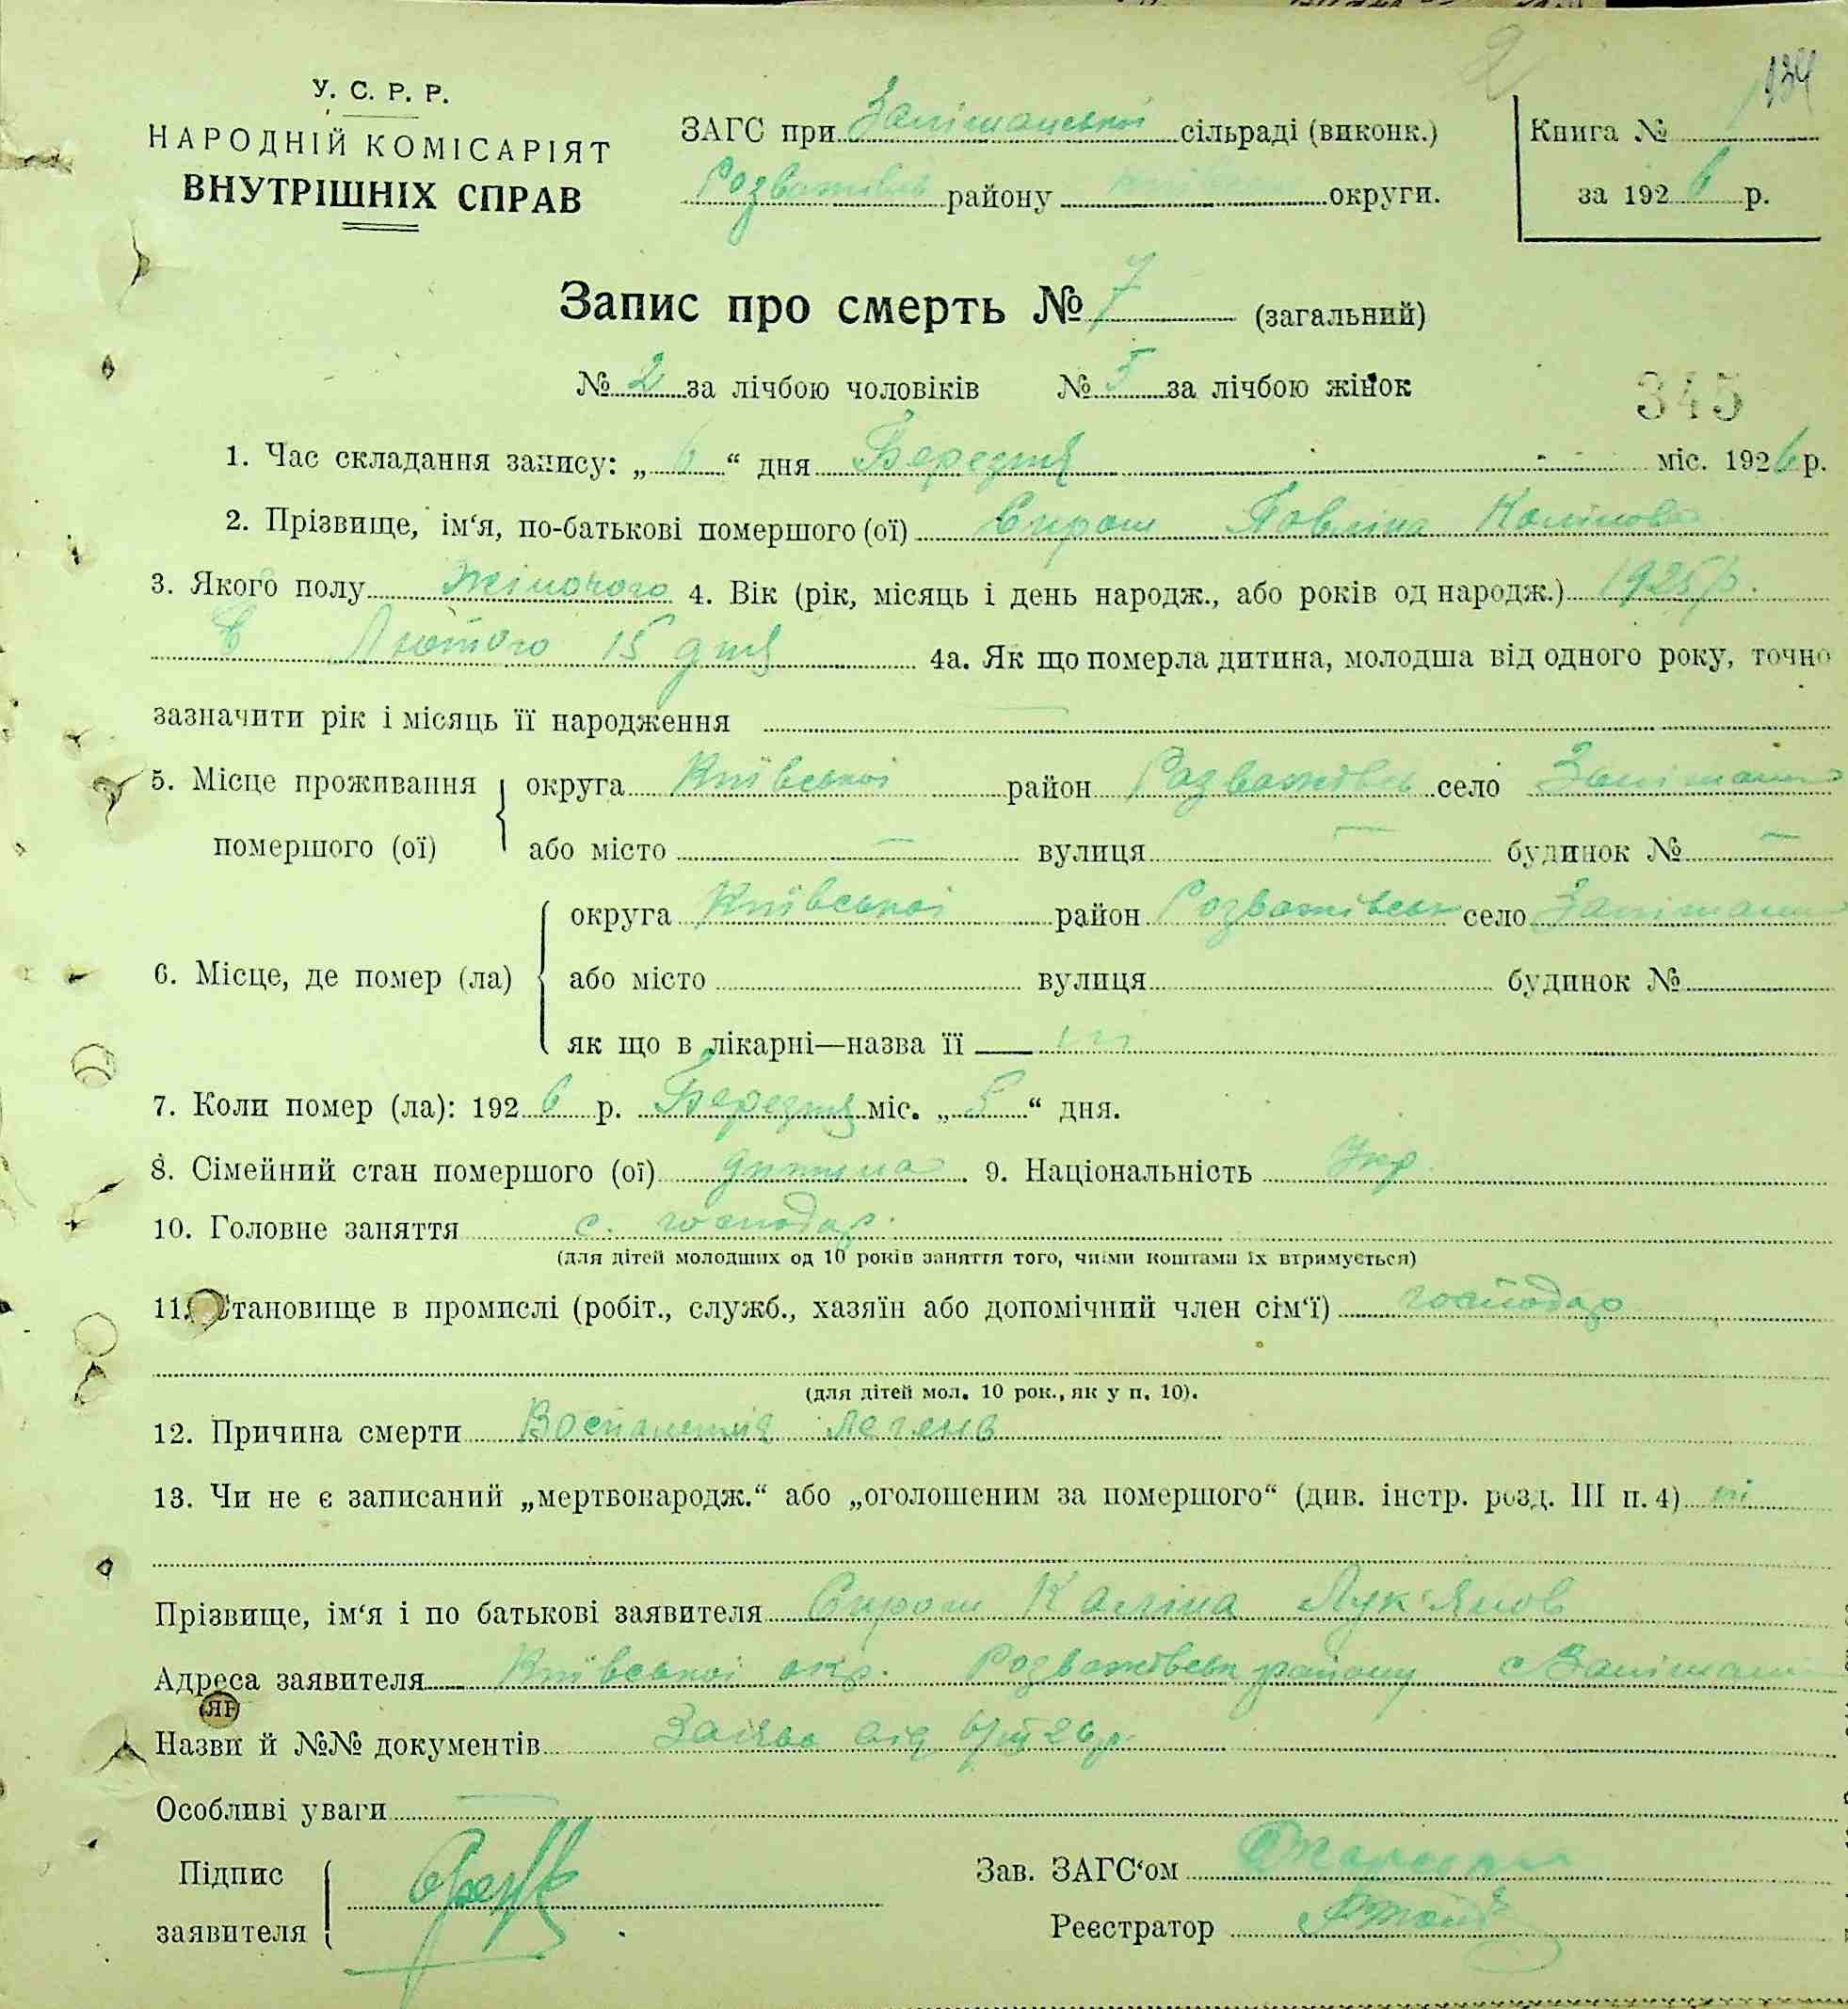 2
134
У. С. Р. Р.
НАРОДНІЙ КОМІСАРІЯТ
ВНУТРІШНІХ СПРАВ
ЗАГС при Запішанської сільраді (виконк.)
району округи.
Книга №
за 1926 р.
Запис про смерть № 7 (загальний)
№ 2 за лічбою чоловіків № 5 за лічбою жінок
345
1. Час складання запису: „ 6 “ дня Березня міс. 1926 р.
2. Прізвище, ім‘я, по-батькові помершого (ої) Сирош Повліна Калінова
3. Якого полу жіночого 4. Вік (рік, місяць і день народж., або років од народж.) 1925 р.
Лютого 15 дня 4а. Як що померла дитина, молодша від одного року, точно
зазначити рік і місяць її народження —
5. Місце проживання помершого (ої) округа Київської район Розважівськ село Запішань
або місто — вулиця — будинок № —
6. Місце, де помер (ла) округа Київської район Розважівськ село Запішань
або місто вулиця будинок №
як що в лікарні—назва її —
7. Коли помер (ла): 1926 р. Березня міс. „ 5 “ дня.
8. Сімейний стан помершого (ої) дитина. 9. Національність Укр.
10. Головне заняття с. господар.
(для дітей молодших од 10 років заняття того, чиїми коштами їх втримується)
11. Становище в промислі (робіт., служб., хазяїн або допомічний член сім‘ї) господар
(для дітей мол. 10 рок., як у п. 10).
12. Причина смерти Воспаленія легенів
13. Чи не є записаний „мертвонародж.“ або „оголошеним за помершого“ (див. інстр. розд. III п. 4) ні
Прізвище, ім‘я і по батькові заявителя Сирош Каліна Лук‘янов
Адреса заявителя Київської окр. Розважівськ району с Запішань
Назви й №№ документів Заява від 6/III 26 р.
Особливі уваги —
Підпис заявителя
Зав. ЗАГС‘ом
Реєстратор